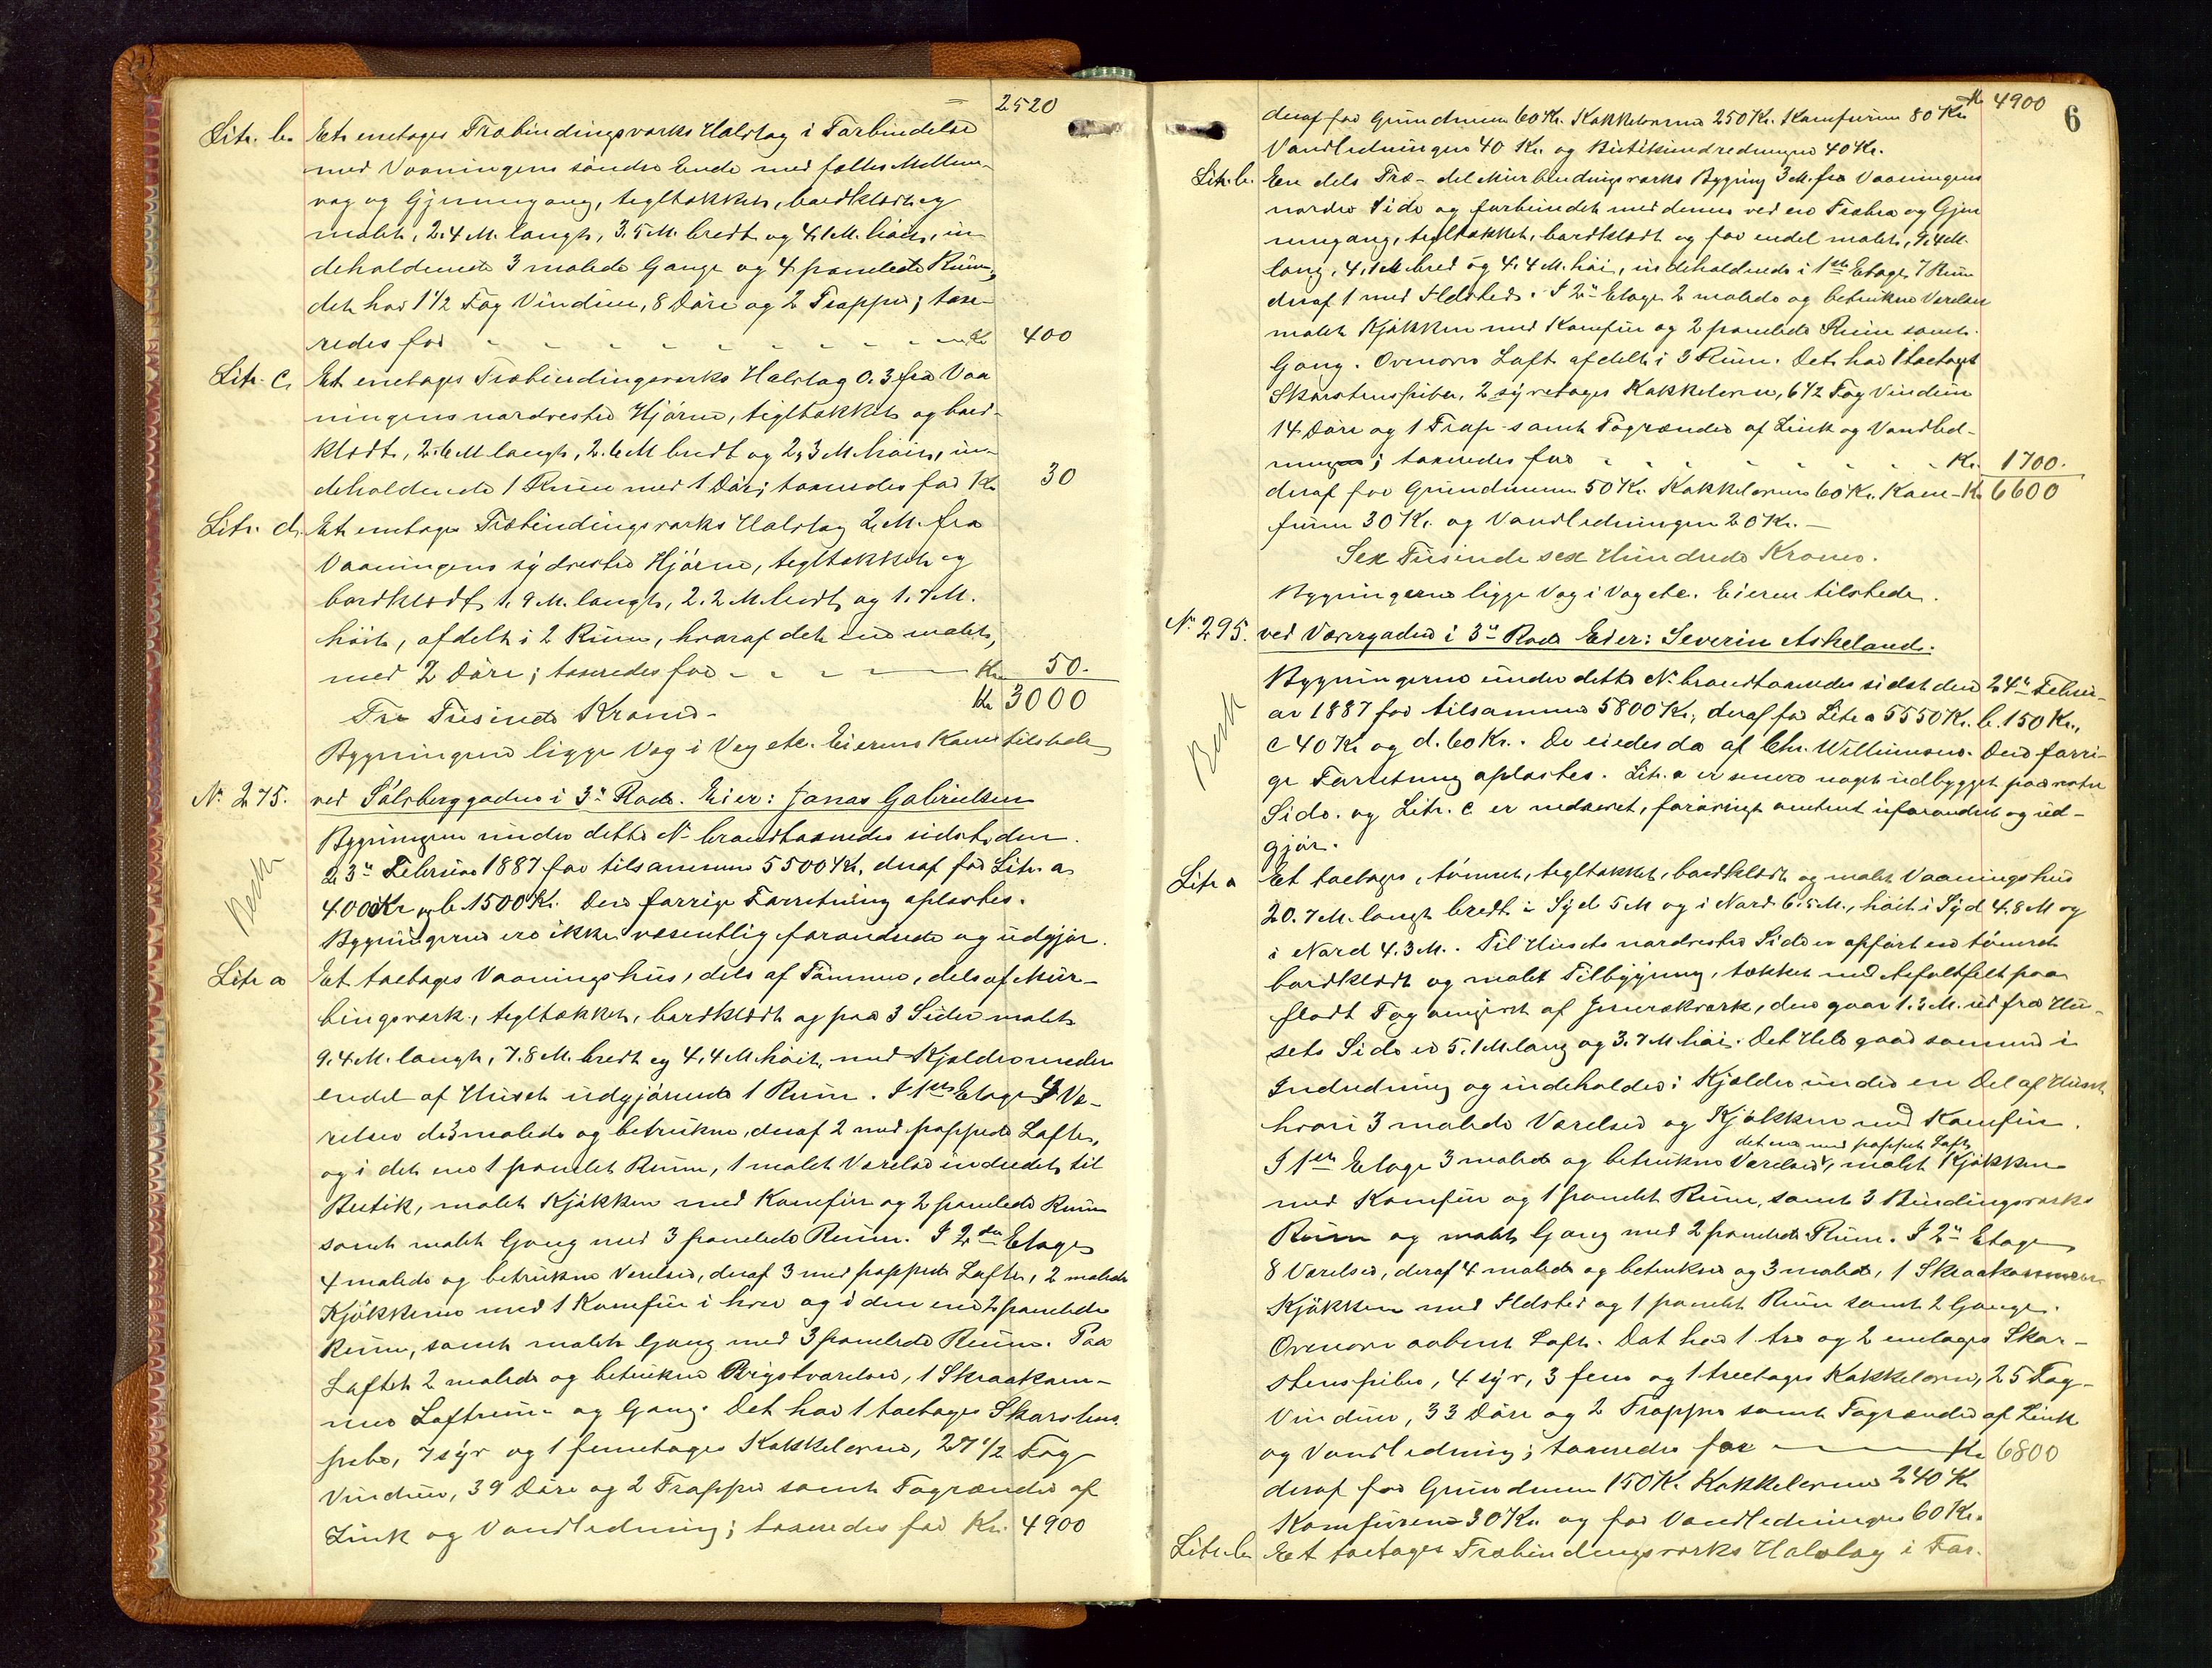 2520
Litr. b. Et enetages Træbindingsværks Halvtag i Forbindelse
med Vaaningens søndre Ende med fælles Mellem-
væg og Gjennemgang, tegltækket, bordklædt og
malet, 2.4 M. langt, 3.5 M. bredt og 4.1 M. høit, in-
deholdende 3 malede Gange og 4 panelede Rum,
det har 1 1/2 Fag Vinduer, 8 Døre og 2 Trapper; taxe-
redes for - - - - Kr 400
Litr. c. Et enetages Træbindingsværks Halvtag 0.3 fra Vaa
ningens nordvestre Hjørne, tegltækket og bord-
klædt, 2.6 M langt, 2.6 M bredt og 2,3 M høit, in-
deholdende 1 Rum med 1 Dør; taxeredes for Kr 30
Litr. d. Et enetages Træbindingsværks Halvtag 2 M. fra
Vaaningens sydvestre Hjørne, tegltækket og
bordklædt, 1.9 M. langt, 2.2 M. bredt og 1.7 M.
høit, afdelt i 2 Rum, hvoraf det ene malet,
med 2 Døre; taxeredes for - - - Kr 50.
Tre Tusinde Kroner - Kr 3000
Bygningerne ligge Væg i Væg etc. Eierens Kone tilstede
No 275. ved Sølvberggaden i 3die Rode. Eier: Jonas Gabrielsen
Bygningerne under dette No brandtaxeredes sidst den
23de Februar 1887 for tilsammen 5500 Kr, deraf for Litr. a
4000 Kr og b. 1500 Kr. Den forrige Forretning oplæstes.
Besk
Bygningerne ere ikke væsentlig forandrede og udgjør.
Litr a Et toetages Vaaningshus, dels af Tømmer, dels af Mur-
bingsværk, tegltækket, bordklædt og paa 3 Sider malet
9.4 M. langt, 7.8 M. bredt og 4,4 M. høit, med Kjælder under
endel af Huset udgjørende 1 Rum. I 1ste Etage 4 Væ-
relser de 3 malede og betrukne, deraf 2 med pappede Lofter,
og i det ene 1 panelet Rum, 1 malet Værelse indredet til
Butik, malet Kjøkken med Komfur og 2 panelede Rum
samt malet Gang med 3 panelede Rum. I 2den Etage
4 malede og betrukne Værelser, deraf 3 med pappede Lofter, 2 malede
Kjøkkener med 1 Komfur i hver og i den ene 2 panelede
Rum, samt malet Gang med 3 panelede Rum. Paa
Loftet 2 malede og betrukne Brystværelser, 1 Skraakam-
mer Loftrum og Gang. Det har 1 toetages Skorstens
pibe, 7 syv og 1 femetages Kakkelovne, 27 1/2 Fag
Vinduer, 39 Døre og 2 Trapper samt Tagrender af
Zink og Vandledning; taxeredes for Kr. 4900
6
Kr 4900
deraf for Grundmuren 60 Kr. Kakkelovnene 250 Kr. Komfurene 80 Kr.
Vandledningen 40 Kr. og Butikindredningen 40 Kr.
Litr. b. En dels Træ- del Murbindingsværks Bygning 3 M. fra Vaaningens
nordre Side og forbundet med denne ved en Træbro og Gjen
nemgang, tegltækket, bordklædt og for endel malet, 9,4 M.
lang, 4,1 M bred og 4,4 M. høi, indeholdende i 1ste Etage 7 Rum
deraf 1 med Ildsted. I 2den Etage 2 malede og betrukne Værelser
malet Kjøkken med Komfur og 2 panelede Rum samt
Gang. Ovenover Loft afdelt i 3 Rum. Det har 1 toetages
Skorstenspiber, 2 syvetages Kakkelovne, 6 1/2 Fag Vinduer
14 Døre og 1 Trap samt Tagrender af Zink og Vandled-
ningen; taxeredes for - - - Kr. 1700.
deraf for Grundmuren 50 Kr. Kakkelovnene 60 Kr. Kom- Kr 6600
furen 30 Kr. og Vandledningen 20 Kr. -
Sex Tusinde sex Hundrede Kroner.
Bygningerne ligge Væg i Væg etc. Eieren tilstede.
No 295. ved Værergaden i 3die Rode Eier: Severin Askeland.
Bygningerne under dette No brandtaxeredes sidst den 24de Febru-
ar 1887 for tilsammen 5800 Kr., deraf for Litr a 5550 Kr. b. 150 Kr.,
c 40 Kr og d. 60 Kr. De eiedes da af Chr. Willumsen. Den forri-
Besk
ge Forretning oplæstes. Litr. a er senere noget udbygget paa vestre
Side. og Litr. c er nedrevet, forøvrigt omtrent uforandret og ud-
gjør.
Litr a Et toetages, tømret, tegltækket, bordklædt og malet Vaaningshus
20.7 M. langt bredt i Syd 5 M og i Nord 6.5 M., høit i Syd 4.8 M og
i Nord 4.3 M. Til Husets nordvestre Side er opført en tømret
bordklædt og malet Tilbygning, tækket med Asfaltfilt paa
fladt Tag omgivet af Jernrækværk, den gaar 1.3 M. ud fra Hu-
sets Side er 5.1 M lang og 3.7 M høi. Det Hele gaar sammen i
Indredning og indeholder: Kjælder under en Del af Huset
hvori 3 malede Værelser og Kjøkken med Komfur.
I 1ste Etage 3 malede og betrukne Værelser, det ene med pappet Loft, malet Kjøkken
med Komfur og 1 panelet Rum, samt 3 Bindingsværks
Rum og malet Gang med 2 panelede Rum. I 2den Etage
8 Værelser, deraf 4 malede og betrukne og 3 malede, 1 Skraakammer
Kjøkken med Ildsted og 1 panelet Rum samt 2 Gange.
Ovenover aabent Loft. Det har 1 tre og 2 enetages Skor-
stenspiber, 4 syv, 3 fem og 1 treetages Kakkelovne, 25 Fag-
Vinduer, 33 Døre og 2 Trapper samt Tagrender af Zink
og Vandledning; taxeredes for - - Kr 6800
deraf for Grundmuren 150 Kr. Kakkelovnene 240 Kr
Komfurene 30 Kr. og for Vandledningen 60 Kr.
Litr. b. Et toetages Træbindingsværks Halvtag i For.